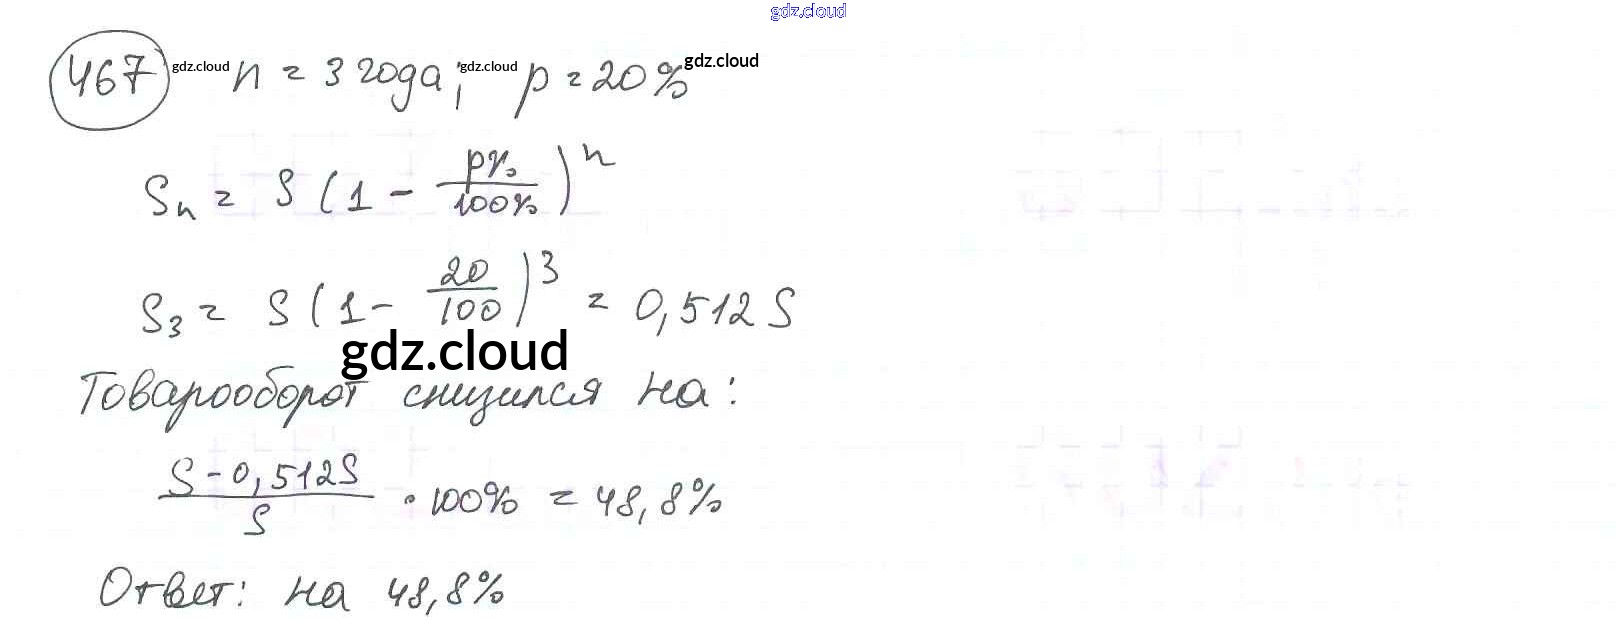 gdz.cloud
467 gdz.cloud n = 3 года; gdz.cloud p = 20% gdz.cloud
Sn = S (1 - p%/100%)^n
S3 = S (1 - 20/100)^3 = 0,512 S
gdz.cloud
Товарооборот снизился на:
(S - 0,512S)/S · 100% = 48,8%
Ответ: на 48,8%